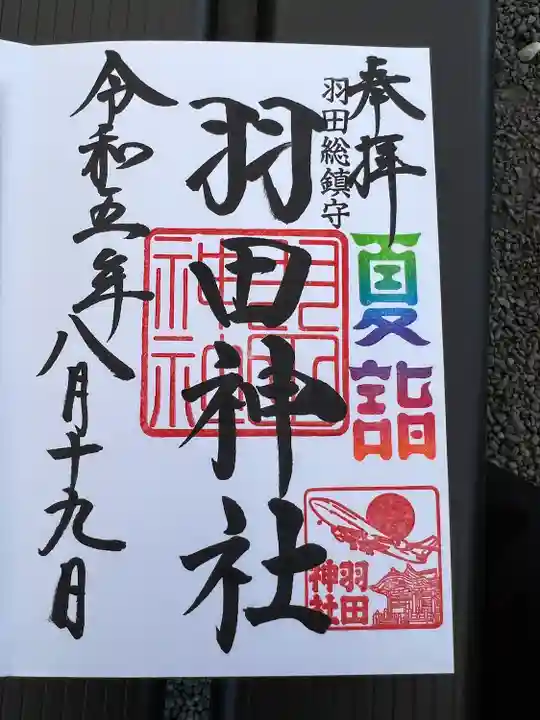 奉拝
夏詣
羽田総鎮守
羽田神社
羽田
神社
羽田
神社
令和五年八月十九日